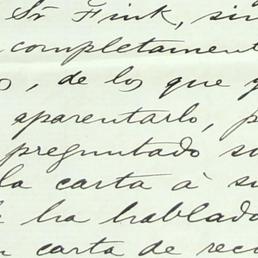 Sr Fink, sin
completament
, de los que
aparentarlo, p
preguntado so
la carta á su
ha hablado
carta de rec